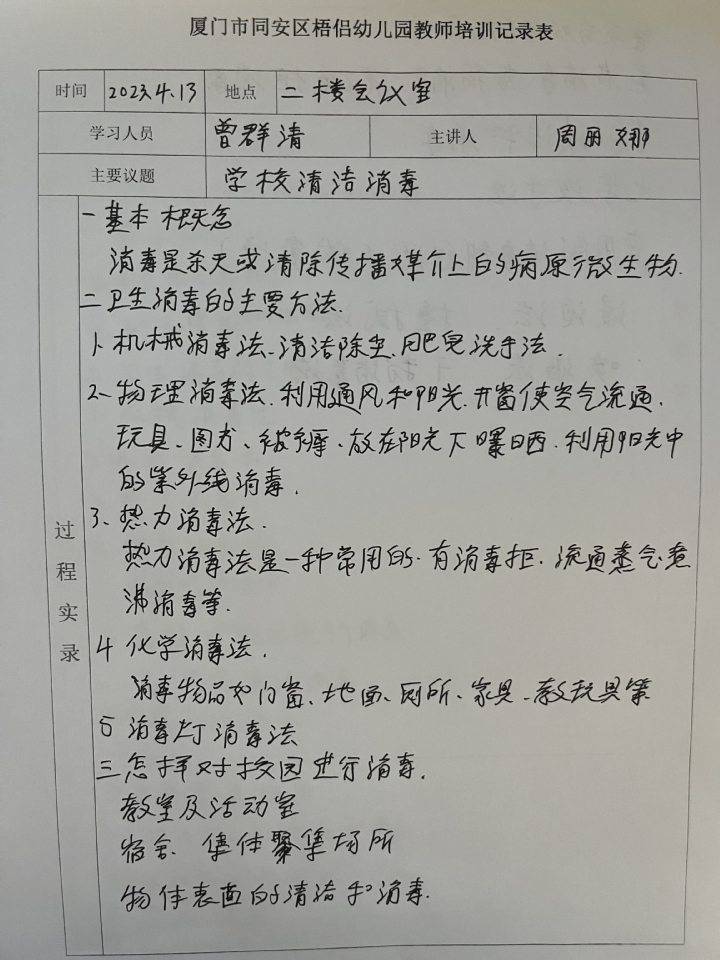 厦门市同安区梧侣幼儿园教师培训记录表
时间 2023.4.13 地点 二楼会议室
学习人员 曾群清 主讲人 周丽娜
主要议题 学校清洁消毒
过程实录
一基本概念
消毒是杀灭或清除传播媒介上的病原微生物.
二卫生消毒的主要方法.
1、机械消毒法、清洁除尘.肥皂洗手法.
2、物理消毒法.利用通风和阳光.开窗使空气流通.
玩具、图书、被褥、放在阳光下曝晒.利用阳光中
的紫外线消毒.
3、热力消毒法.
热力消毒法是一种常用的.有消毒柜.流通蒸气煮
沸消毒等.
4 化学消毒法.
消毒物品如门窗、地面、厕所、家具、教玩具等
5 消毒灯消毒法
三怎样对校园进行消毒.
教室及活动室
宿舍. 集体聚集场所
物体表面的清洁和消毒.